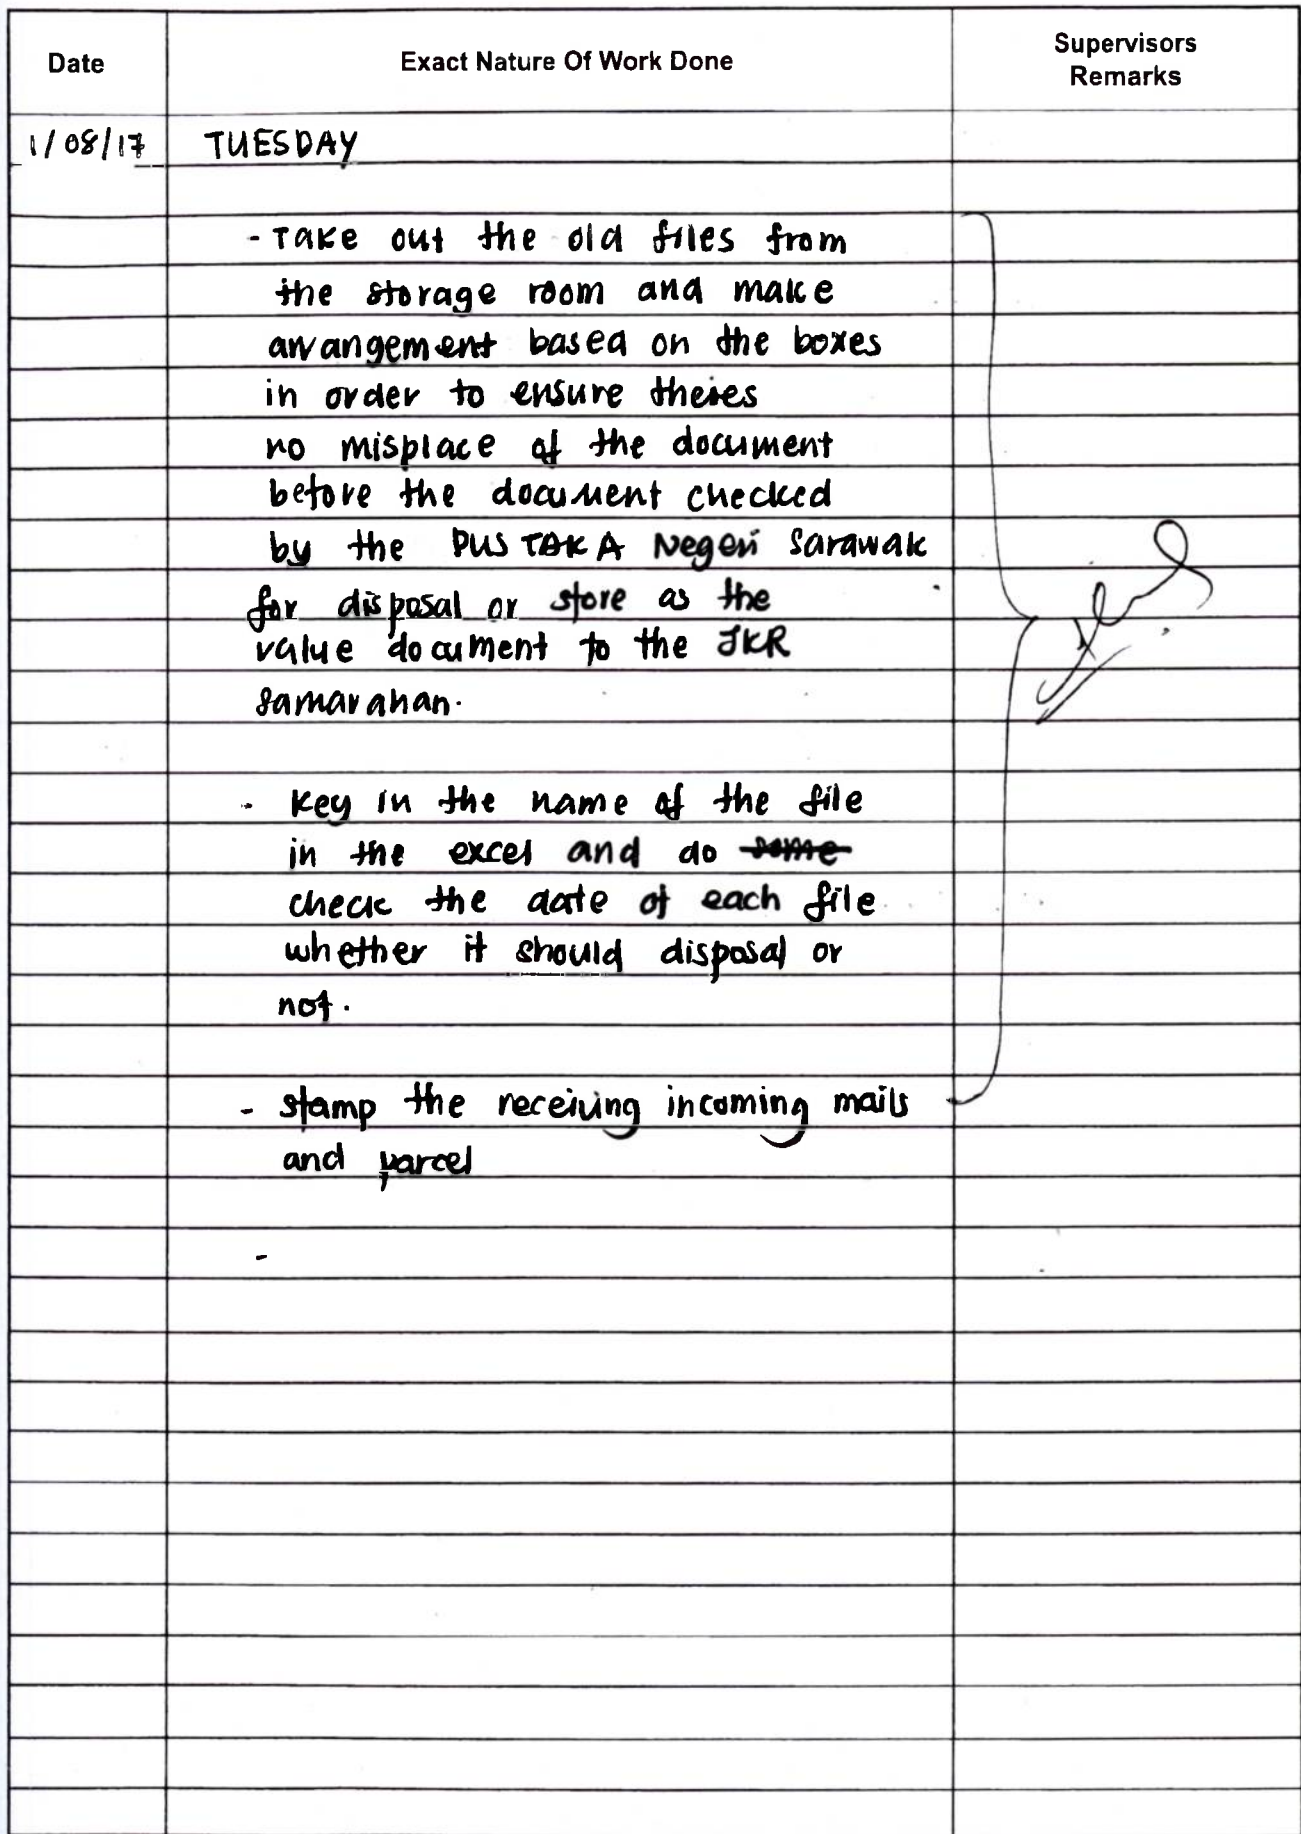 Date
Exact Nature Of Work Done
Supervisors
Remarks
1/08/17
TUESDAY
- Take out the old files from
the storage room and make
arrangement based on the boxes
in order to ensure theres
no misplace of the document
before the document checked
by the PUSTAKA Negeri Sarawak
for disposal or store as the
value document to the JKR
Samarahan.
- Key in the name of the file
in the excel and do some
check the date of each file
whether it should disposal or
not.
- stamp the receiving incoming mails
and parcel
-